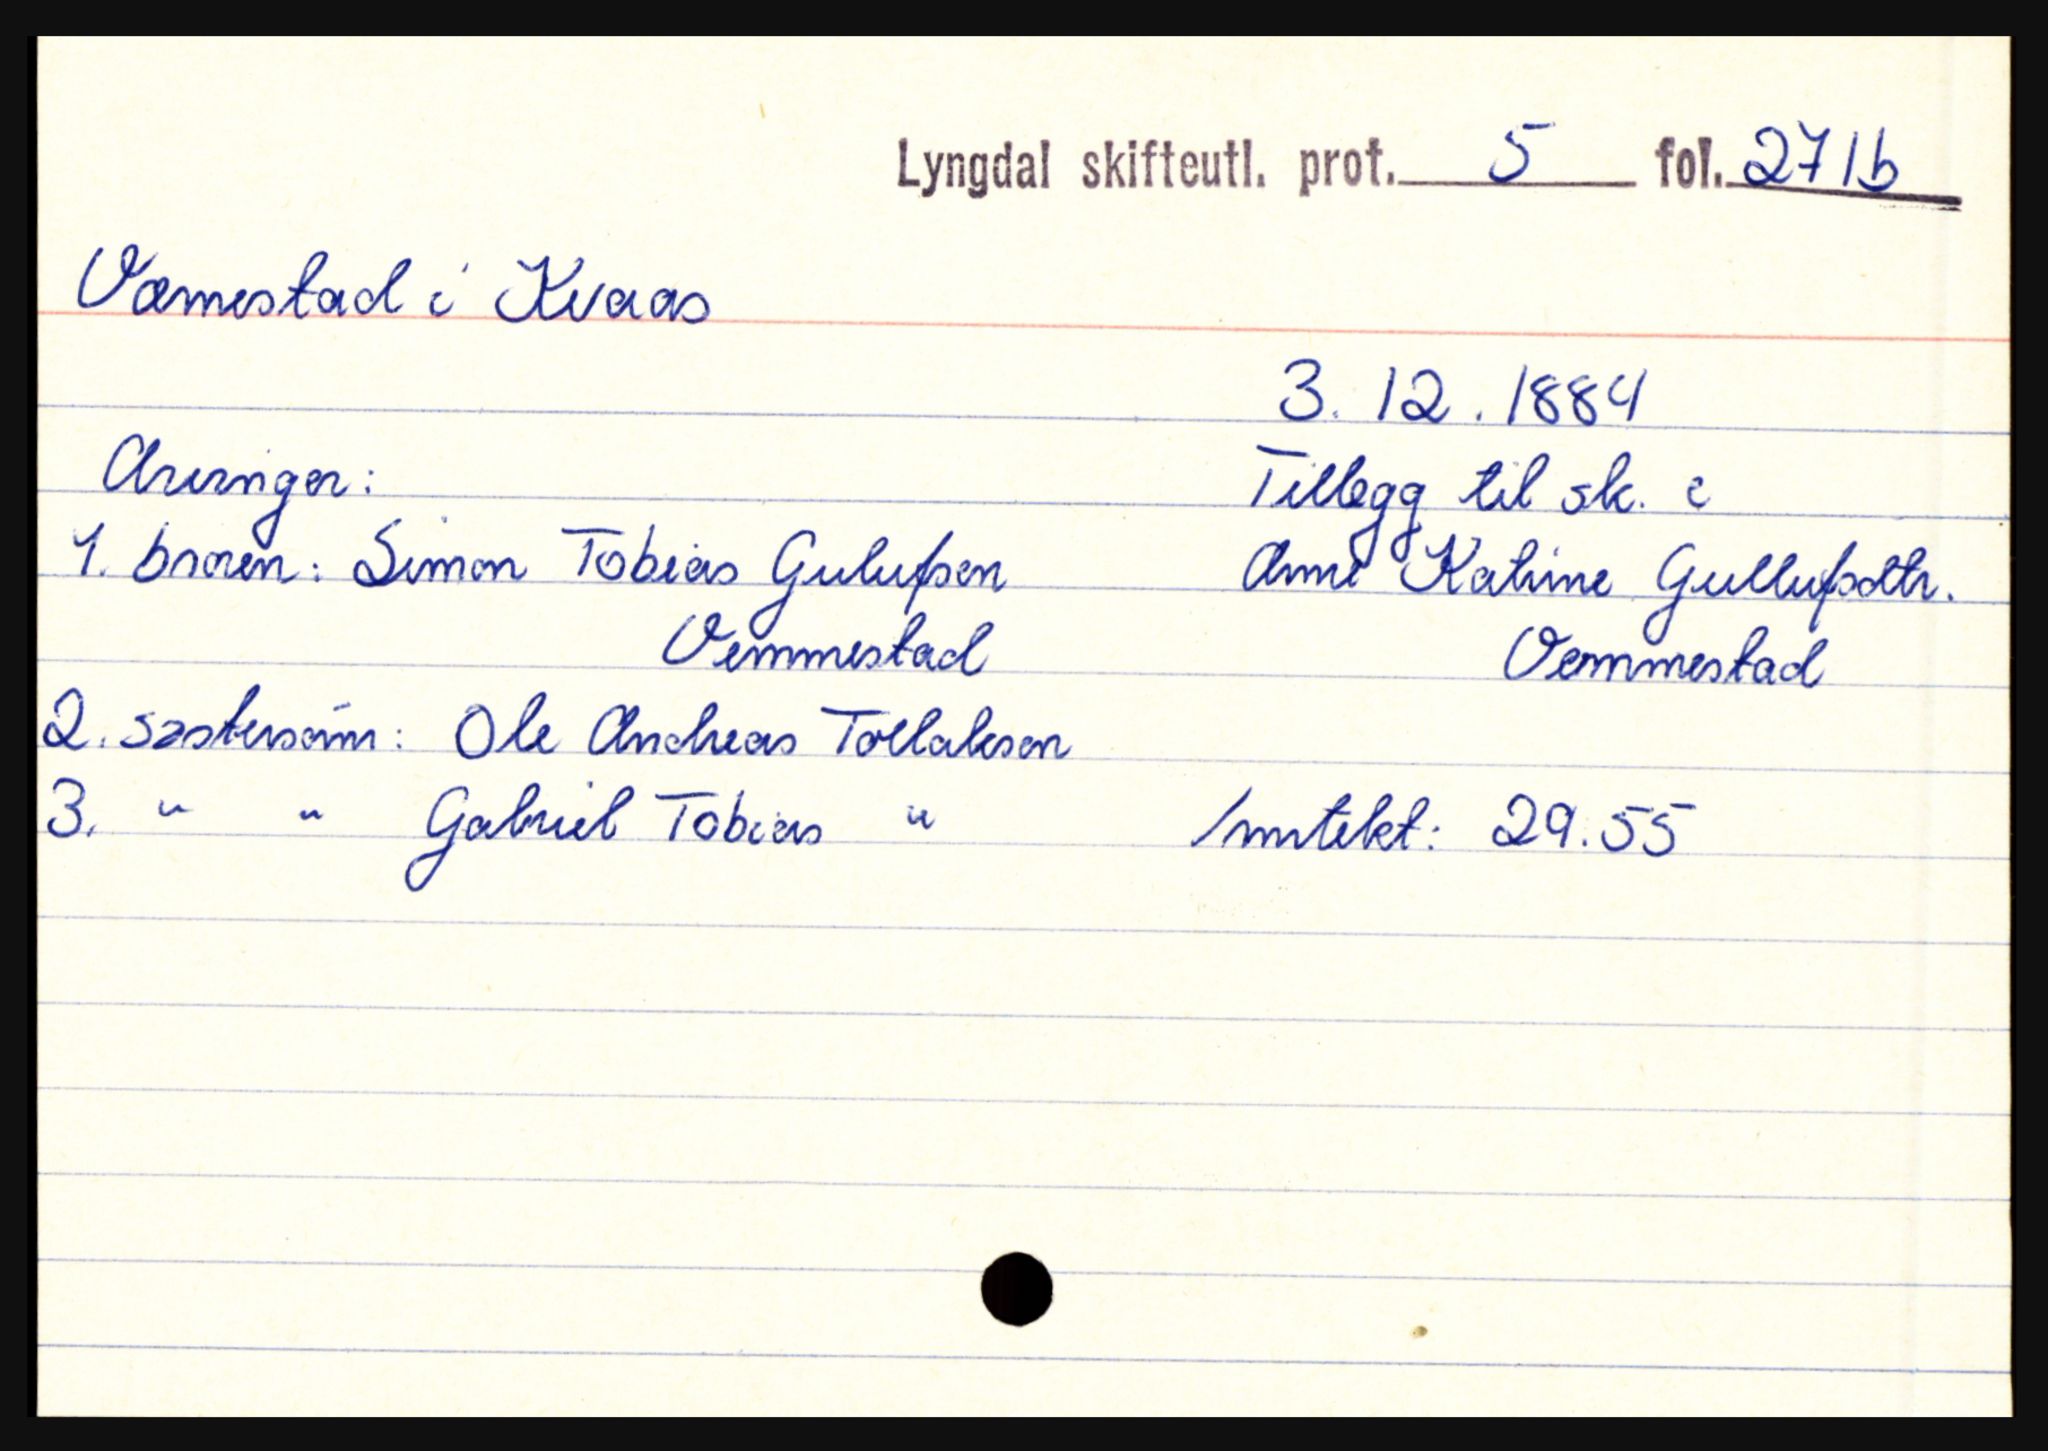 Lyngdal skifteutl. prot. 5 fol. 271b
Væmestad i Kvaas
3. 12. 1884
Arvinger:
Tillegg til sk. e
1. broren: Simon Tobias Gulufsen
Vemmestad
Anne Katrine Gullufsdtr.
Vemmestad
2. søstersønn: Ole Andreas Tollaksen
3. " " Gabriel Tobias "
Inntekt: 29.55